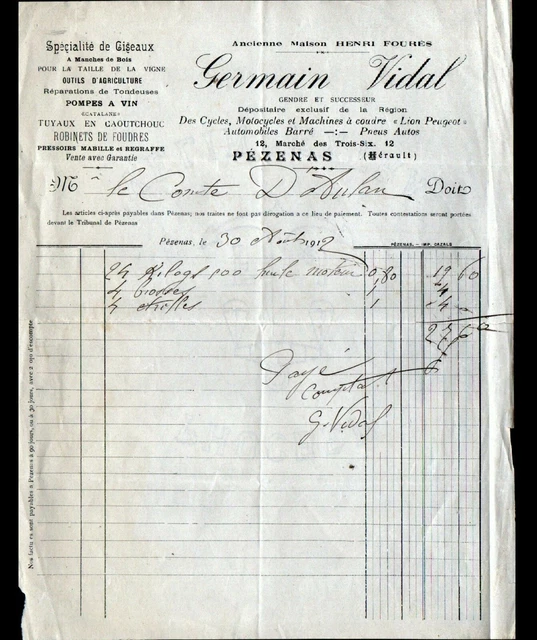 Spécialité de Ciseaux
A Manches de Bois
POUR LA TAILLE DE LA VIGNE
OUTILS D'AGRICULTURE
Réparations de Tondeuses
POMPES A VIN
CATALANE
TUYAUX EN CAOUTCHOUC
ROBINETS DE FOUDRES
PRESSOIRS MABILLE et REGRAFFE
Vente avec Garantie
Ancienne Maison HENRI FOURÈS
Germain Vidal
GENDRE ET SUCCESSEUR
Dépositaire exclusif de la Région
Des Cycles, Motocycles et Machines à coudre « Lion Peugeot »
Automobiles Barré —:— Pneus Autos
12, Marché des Trois-Six, 12
PÉZENAS (Hérault)
M le Comte D'Aulan Doit
Les articles ci-après payables dans Pézenas; nos traites ne font pas dérogation à ce lieu de paiement. Toutes contestations seront portées
devant le Tribunal de Pézenas
Pézenas, le 30 Août 1912
PÉZENAS. - IMP.
24 Kilogs 500 huile moteur 0,80 19 60
4 brosses 1 4
4 étrilles 1 4
27 60
Payé
Comptant
G. Vidal
sont payables à Pézenas à 90 jours, ou à 30 jours, avec 2 0/0 d'escompte